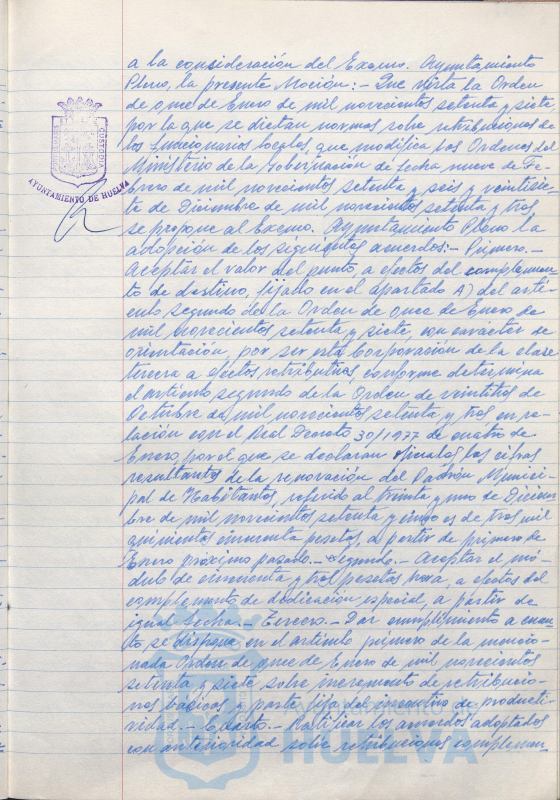 a la consideración del Excmo. Ayuntamiento
Pleno, la presente Moción:- Que vista la Orden
de once de Enero de mil novecientos setenta y siete
por la que se dictan normas sobre retribuciones de
los funcionarios locales, que modifica las Ordenes del
Ministerio de la Gobernación de fecha nueve de Fe-
brero de mil novecientos setenta y seis y veintisie-
te de Diciembre de mil novecientos setenta y tres
se propone al Excmo. Ayuntamiento Pleno la
adopción de los siguientes acuerdos:- Primero.-
Aceptar el valor del punto, a efectos del complemen-
to de destino, fijado en el apartado A) del artí-
culo segundo de la Orden de once de Enero de
mil novecientos setenta y siete, con carácter de
orientación, por ser esta Corporación de la clase
tercera a efectos retributivos, conforme determina
el artículo segundo de la Orden de veintitres de
Octubre de mil novecientos setenta y tres en re-
lación con el Real Decreto 30/1977 de cuatro de
Enero, por el que se declaran oficiales las cifras
resultantes de la renovación del Padrón Munici-
pal de Habitantes, referido al treinta y uno de Diciem-
bre de mil novecientos setenta y cinco es de tres mil
quinientas cincuenta pesetas, a partir de primero de
Enero próximo pasado.- Segundo.- Aceptar el mó-
dulo de cincuenta y tres pesetas hora, a efectos del
complemento de dedicación especial, a partir de
igual fecha.- Tercero.- Dar cumplimiento a cuan-
to se dispone en el artículo primero de la mencio-
nada Orden de once de Enero de mil novecientos
setenta y siete sobre incremento de retribucio-
nes básicas y parte fija del incentivo de producti-
vidad.- Cuarto.- Ratificar los acuerdos adoptados
con anterioridad sobre retribuciones complemen-
CUSTODIA
AYUNTAMIENTO DE HUELVA
HUELVA